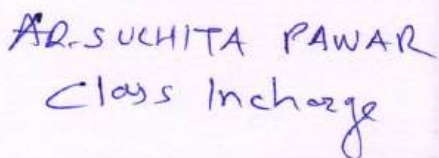 AR. SUCHITA PAWAR
Class Incharge